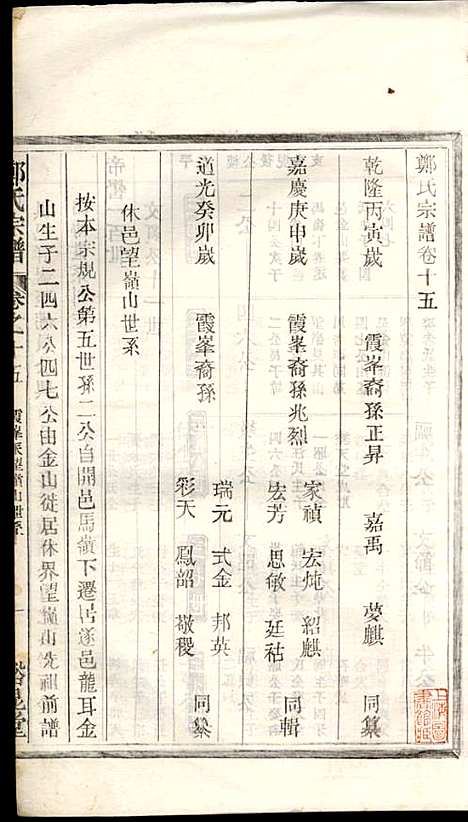 鄭氏宗譜卷十五
乾隆丙寅歲 霞峯裔孫正昇 嘉禹 夢麒 同纂
嘉慶庚申歲 霞峯裔孫兆烈 家禎 宏炖 紹麒
宏芳 思敏 廷祜 同輯
道光癸卯歲 霞峯裔孫 瑞元 式金 邦英
彩天 鳳韶 敬稷 同纂
休邑望嶺山世系
按本宗規公第五世孫二公自開邑馬嶺下遷居遂邑龍耳金
山生子二四六公四七公由金山徙居休界望嶺山先祖前譜
鄭氏宗譜 卷之十五 霞峯派望嶺山世系 一